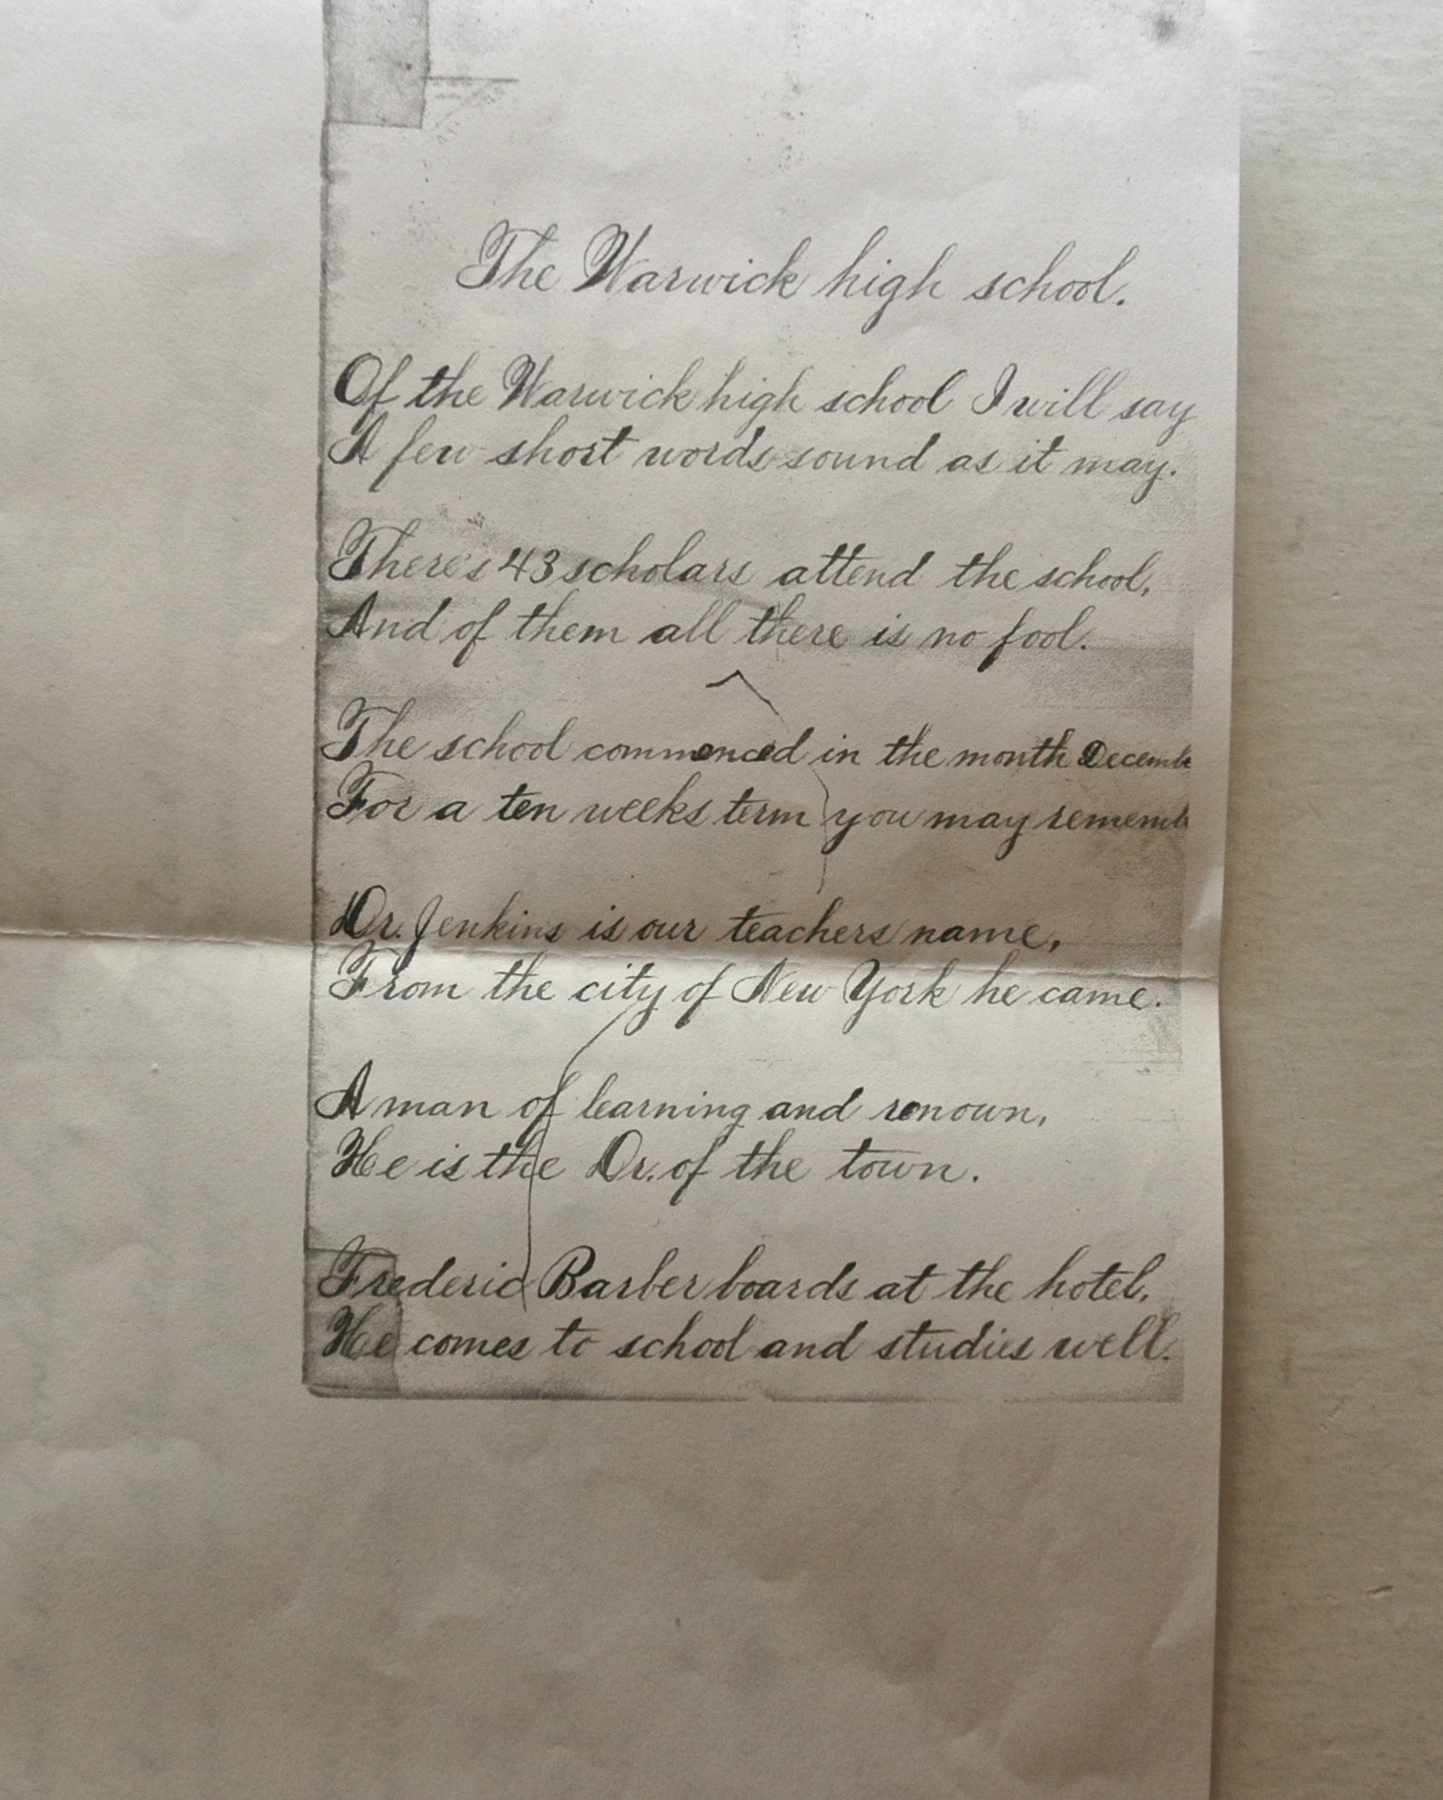 The Warwick high school.
Of the Warwick high school I will say
A few short words sound as it may.
There's 43 scholars attend the school,
And of them all there is no fool.
The school commenced in the month Decemb
For a ten weeks term you may rememb
Dr. Jenkins is our teachers name,
From the city of New York he came.
A man of learning and renown,
He is the Dr. of the town.
Frederic Barber boards at the hotel,
He comes to school and studies well.